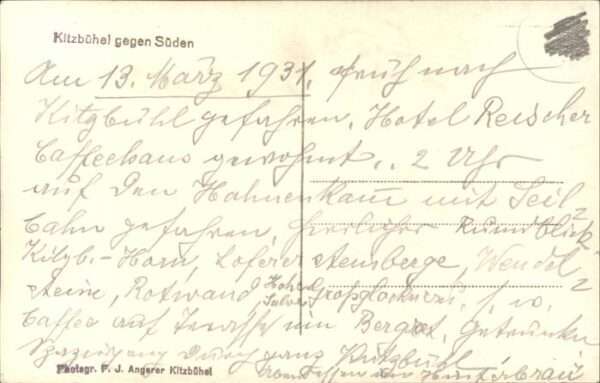 Kitzbühel gegen Süden
Am 13. März 1931, früh nach
Kitzbühl gefahren. Hotel Reischer
Caffeehaus gewohnt.. 2 Uhr
auf den Hahnenkam mit Seil
bahn gefahren, herrlicher Rundblick
Kitzb.-Horn, Loferer Steinberge, Wendel
steine, Rotwand, Hohe Salve, Großglockner,
Caffee auf Terasse im Berghot. Getrunken
Spaziergang durch ganz Kitzbühl
Photogr. F. J. Angerer Kitzbühel
Abendessen im Hinterbräu